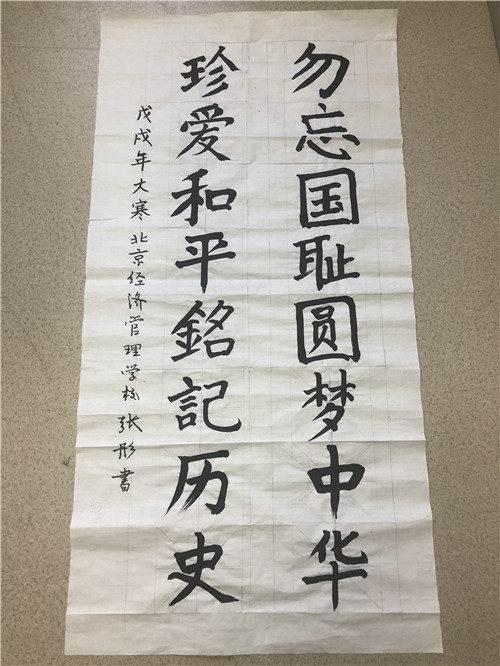 勿忘国耻圆梦中华
珍爱和平銘記历史
戊戌年大寒 北京经济管理学校 张彤書